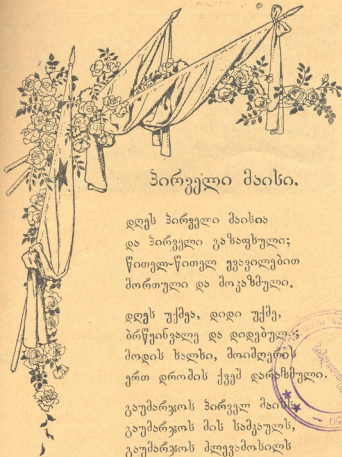 პირველი მაისი.
დღეს პირველი მაისია
და პირველი გაზაფხული;
წითელ-წითელ ყვავილებით
მორთული და მოკაზმული.
დღეს უქმეა, დიდი უქმე,
ბრწყინვალე და დიდებული;
მოდის ხალხი, მოიმღერის
ერთ დროშის ქვეშ დარაზმული.
გაუმარჯოს პირველ მაისს,
გაუმარჯოს მის სამკაულს,
გაუმარჯოს ძლევამოსილს